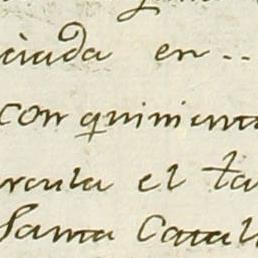 ciada en..
con quinienta
rcula el ta
Santa Catal